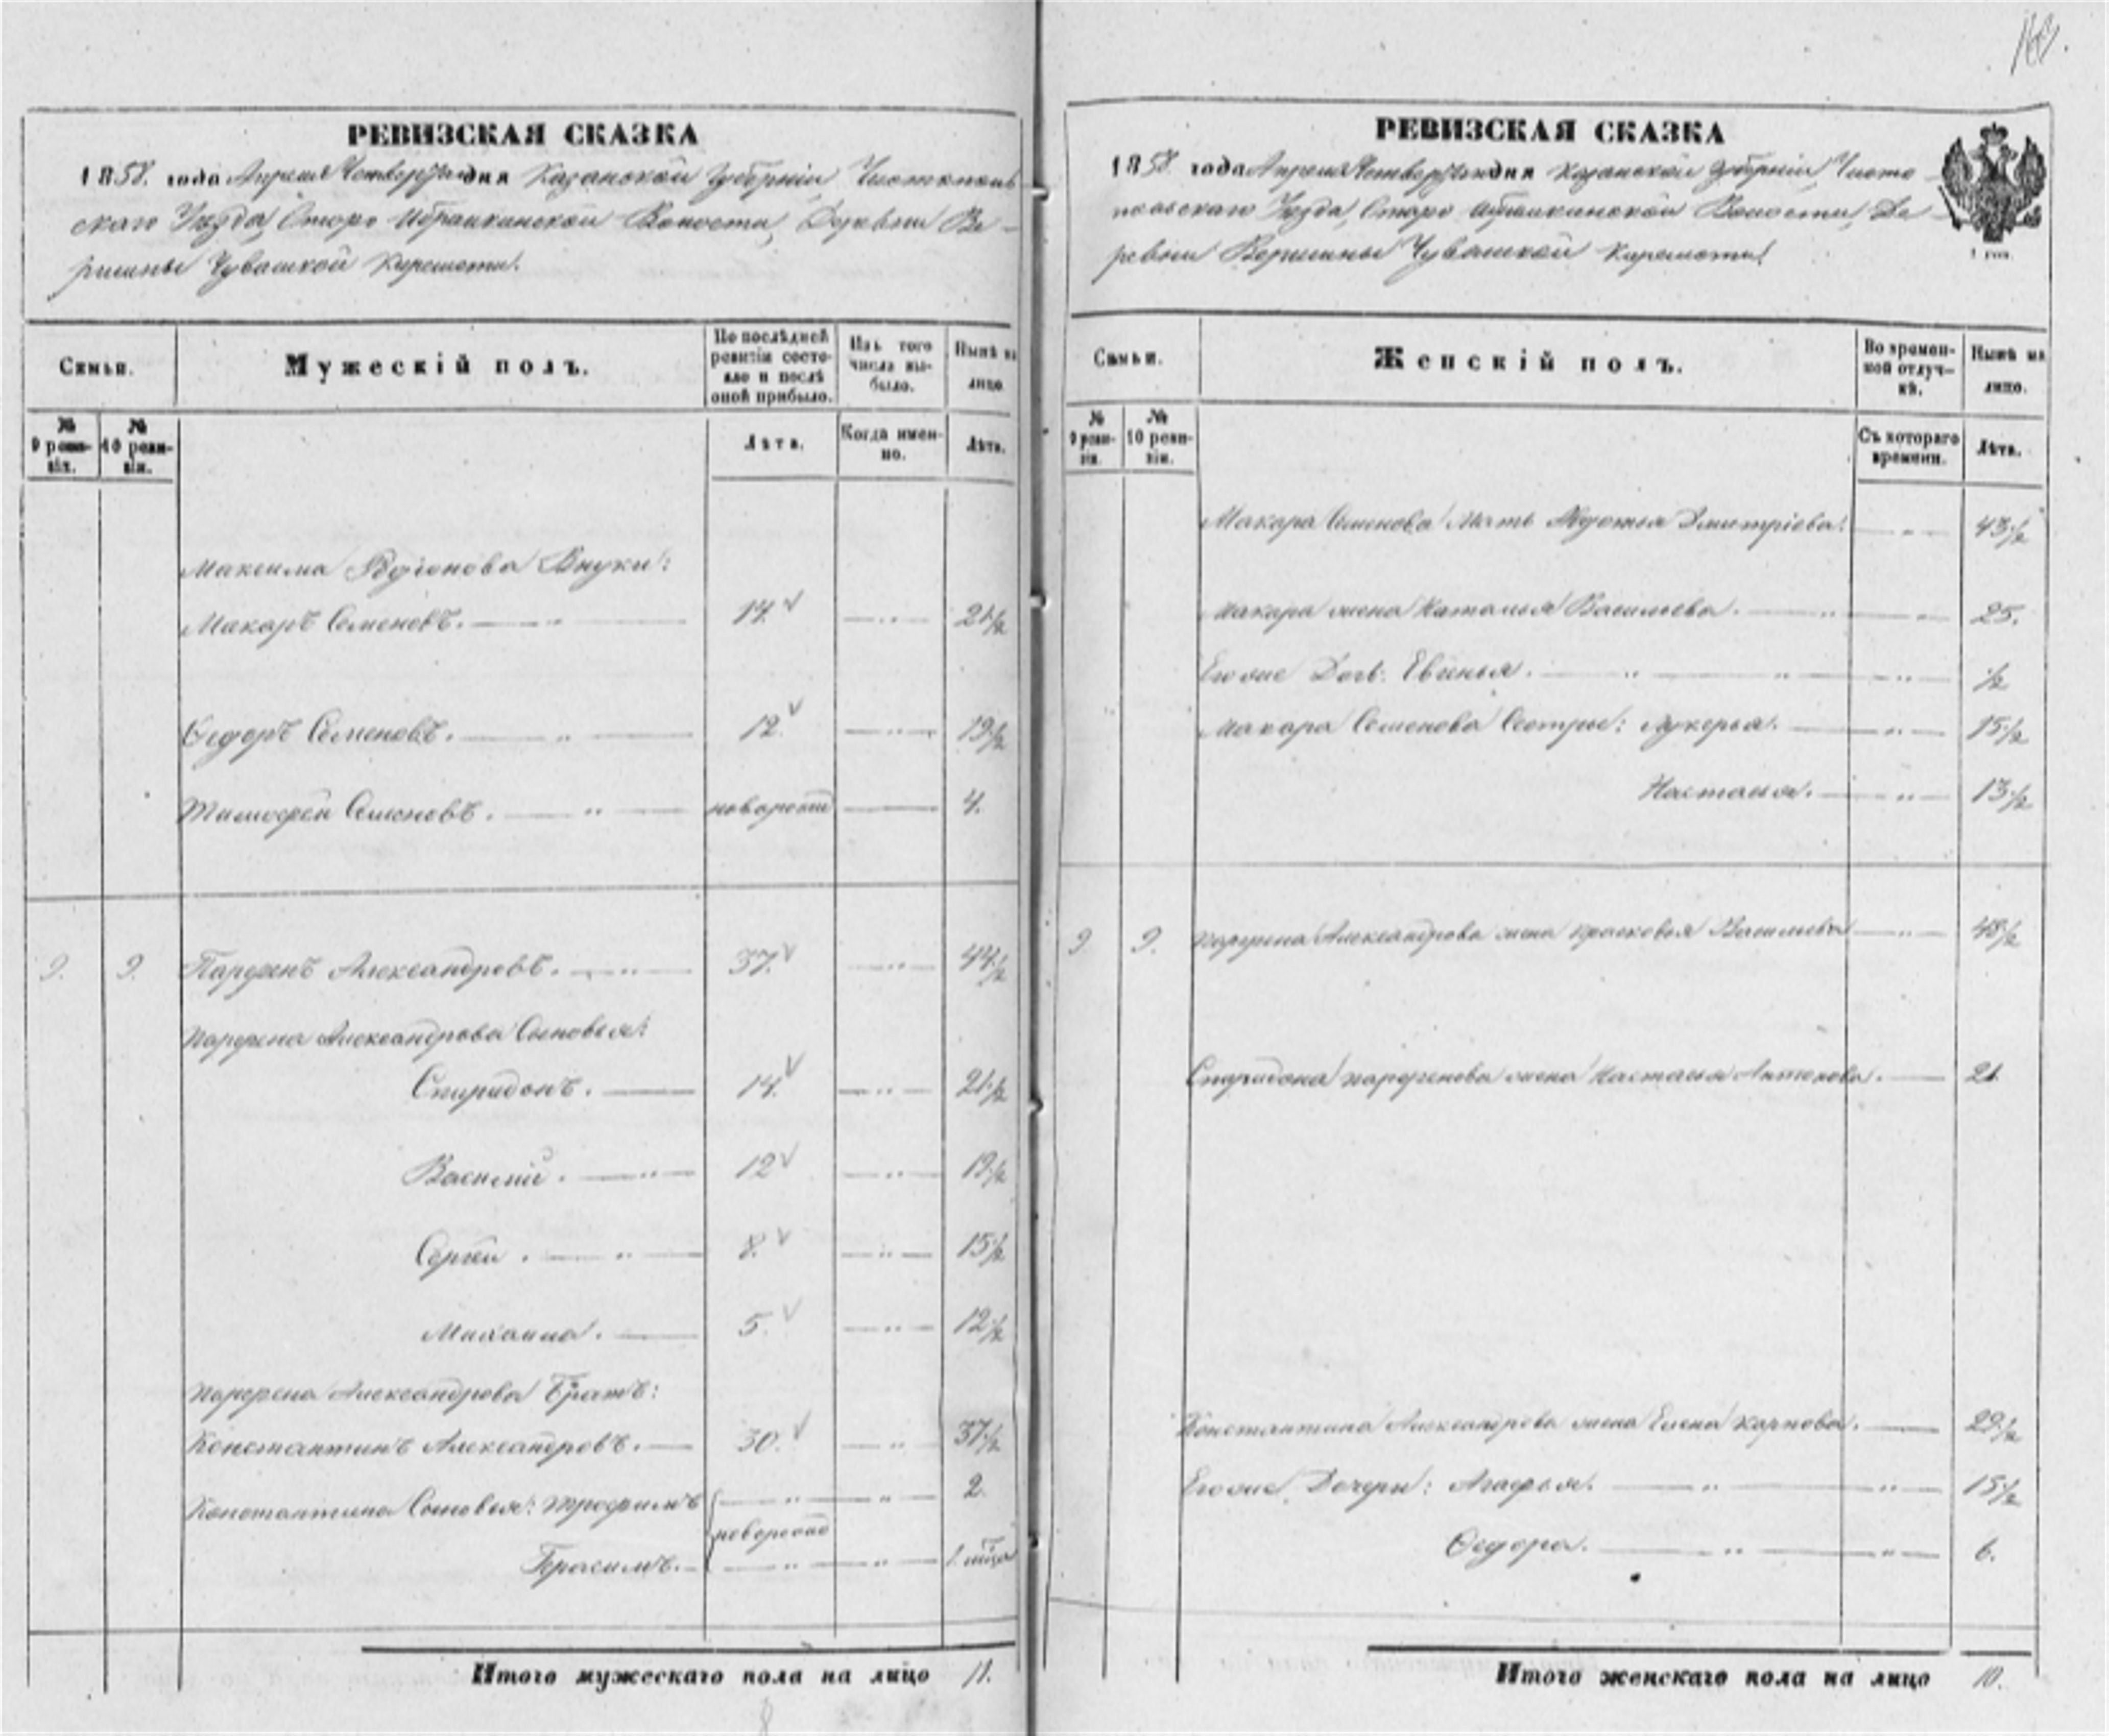 РЕВИЗСКАЯ СКАЗКА
1858. года Апреля Четвертаго дня Казанской Губерніи, Чистополь
скаго Уѣзда, Старо Ибрайкинской Волости, Деревни Ве-
ршины Чувашской Киремети.
Семьи.
Мужескій полъ.
По послѣдней ревизіи состояло и послѣ оной прибыло.
Изъ того числа выбыло.
Нынѣ на лицо.
№ 9 ревизіи.
№ 10 ревизіи.
Лѣта.
Когда именно.
Лѣта.
Максима Родіонова Внуки:
Макаръ Семеновъ. 14. 21 1/2
Ѳедоръ Семеновъ. 12. 19 1/2
Тимофей Семеновъ. новорожд 4.
9. 9. Парфенъ Александровъ. 37. 44 1/2
Парфена Александрова Сыновья:
Спиридонъ. 14. 21 1/2
Василій. 12 19 1/2
Сергей. 8. 15 1/2
Михаила. 5. 12 1/2
Парфена Александрова Братъ:
Константинъ Александровъ. 30. 37 1/2
Константина Сыновья: Трофимъ 2.
новорожд
Герасимъ. 1 мѣсяца
Итого мужескаго пола на лицо 11.
РЕВИЗСКАЯ СКАЗКА
1858 года Апреля Четвертаго дня Казанской Губерніи, Чисто
польскаго Уѣзда, Старо Ибрайкинской Волости, Де-
ревни Вершины Чувашской Киремети.
Семьи.
Женскій полъ.
Во временной отлучкѣ.
Нынѣ на лицо.
№ 9 ревизіи.
№ 10 ревизіи.
Съ котораго времени.
Лѣта.
Макара Семенова Мать Авдотья Дмитріева. 43 1/2
Макара жена Наталья Васильева. 25.
Его же Дочь: Евгенья. 1/2
Макара Семенова Сестры: Лукерья. 15 1/2
Настасья. 13 1/2
9 9. Парфена Александрова жена Прасковья Васильева 48 1/2
Спиридона Парфенова жена Настасья Антонова. 21
Константина Александрова жена Елена Карпова. 29 1/2
Его же Дочери: Агафья. 15 1/2
Ѳедора. 6.
Итого женскаго пола на лицо 10.